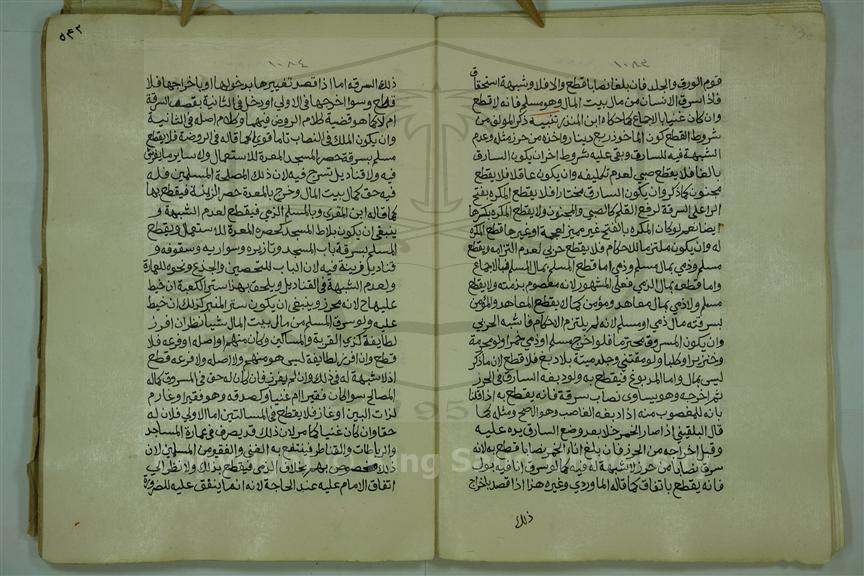 ١٠٨٣
قوم الورق والجلد فان بلغا نصابا قطع والا فلا وشبهة استحقاق
فاذا سرق الانسان من مال بيت المال وهو مسلم فانه لا قطع
وان كان غنيا بالاجماع كما حكاه ابن المنذر تنبيه ذكر المولف من
شروط القطع كون الماخوذ ربع دينار واخذه من حرز مثله وعدم
الشبهة فيه للسارق وبقي عليه شروط اخر ان يكون السارق
بالغا فلا يقطع صبي لعدم تكليفه وان يكون عاقلا فلا يقطع
مجنون كما ذكر وان يكون السارق مختارا فلا يقطع المكره بفتح
الرا على السرقة لرفع القلم كالصبي والمجنون ولا يقطع المكره بكسرها
ايضا نعم لو كان المكره بالفتح غير مميز لعجمة او غيرها قطع المكره
له وان يكون ملتزما للاحكام فلا يقطع حربي لعدم التزامه ويقطع
مسلم وذمي بمال مسلم وذمي اما قطع المسلم بمال المسلم فبالاجماع
واما قطعه بمال الذمي فعلى المشهور لانه معصوم بذمته ولا يقطع
مسلم ولا ذمي بمال معاهد ومؤمن كما لا يقطع المعاهد والمؤمن
بسرقته مال ذمي او مسلم لانه لم يلتزم الاحكام فاشبه الحربي
وان يكون المسروق محترما فلو اخرج مسلم او ذمي خمرا ولو محترمة
وخنزيرا وكلبا ولو مقتني وجلد ميتة بلا دبغ فلا قطع لان ما ذكر
ليس بمال واما المدبوغ فيقطع به ولو دبغه السارق في الحرز
ثم اخرجه وهو يساوي نصاب سرقة فانه يقطع به اذا قلنا
بانه للمغصوب منه اذا دبغه الغاصب وهو الاصح ومثله كما
قال البلقيني اذا صار الخمر خلا بعد وضع السارق يده عليه
وقبل اخراجه من الحرز فان بلغ انا الخمر نصابا قطع به لانه
سرق نصابا من حرز لا شبهة له فيه كما لو سرق انا فيه بول
فانه يقطع باتفاق كما قاله الماوردي وغيره هذا اذا قصد باخراج
ذلك
٥٤٢
١٠٨٤
ذلك السرقة اما اذا قصد تغييرها بدخولها او باخراجها فلا
قطع وسوا اخرجها في الاولي او دخل في الثانية بقصد السرقة
ام لا كما هو قضية كلام الروض فيهما وكلام اصله في الثانية
وان يكون الملك في النصاب تاما قويا كما قاله في الروضة فلا يقطع
مسلم بسرقة حصر المسجد المعدة للاستعمال ولا سائر ما يفرش
فيه ولا قناديل تسرج فيه لان ذلك لمصلحة المسلمين فله
فيه حق كمال بيت المال وخرج بالمعدة حصر الزينة فيقطع بها
كما قاله ابن المقري وبالمسلم الذمي فيقطع لعدم الشبهة و
ينبغي ان يكون بلاط المسجد كحصره المعدة للاستعمال ويقطع
المسلم بسرقة باب المسجد وتازيره وسواريه وسقوفه و
قناديل زينة فيه لان الباب للتحصين والجذع ونحوه للعمارة
ولعدم الشبهة في القناديل ويلحق بهذا ستر الكعبة ان خيط
عليها ح لانه محرز وينبغي ان يكون ستر المنبر كذلك ان خيط
عليه ولو سرق المسلم من مال بيت المال شيا نظر ان افرز
لطايفة كذي القربة والمساكين وكان منهم او اصله او فرعه فلا
قطع وان افرز لطايفة ليس هو منهم ولا اصله ولا فرعه قطع
اذ لا شبهة له في ذلك وان لم يفرز فان كان له حق في المسروق كمال
المصالح سوا كان فقيرا ام غنيا وكصدقه وهو فقير او غارم
لذات البين او غاز فلا يقطع في المسالتين اما الاولى فلان له
حقا وان كان غنيا كما مر لان ذلك قد يصرف في عمارة المساجد
والرباطات والقناطر فينتفع به الغني والفقير من المسلمين لان
ذلك مخصوص بهم بخلاف الذمي فيقطع بذلك ولا نظر الى
اتفاق الامام عليه عند الحاجة لانه انما ينفق عليه للضرورة